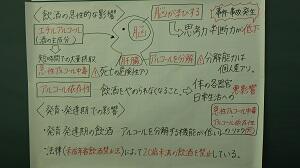 〈飲酒の急性的な影響〉
脳がまひする
事件・事故発生
脳
思考力 判断力が低下
エチルアルコール
(酒の主成分)
短時間での大量摂取
肝臓
アルコールを分解
分解能力は
個人差アリ
急性アルコール中毒
死亡の危険性アリ
アルコール依存症
飲酒をやめられなくなること
体の各器官
日常生活への
悪影響
〈発育・発達期での影響〉
急性アルコール中毒
アルコール依存症
・発育・発達期の飲酒
アルコールを分解する機能が低い
リスク
・法律(未成年者飲酒禁止法)によって20歳未満の飲酒を禁止している。